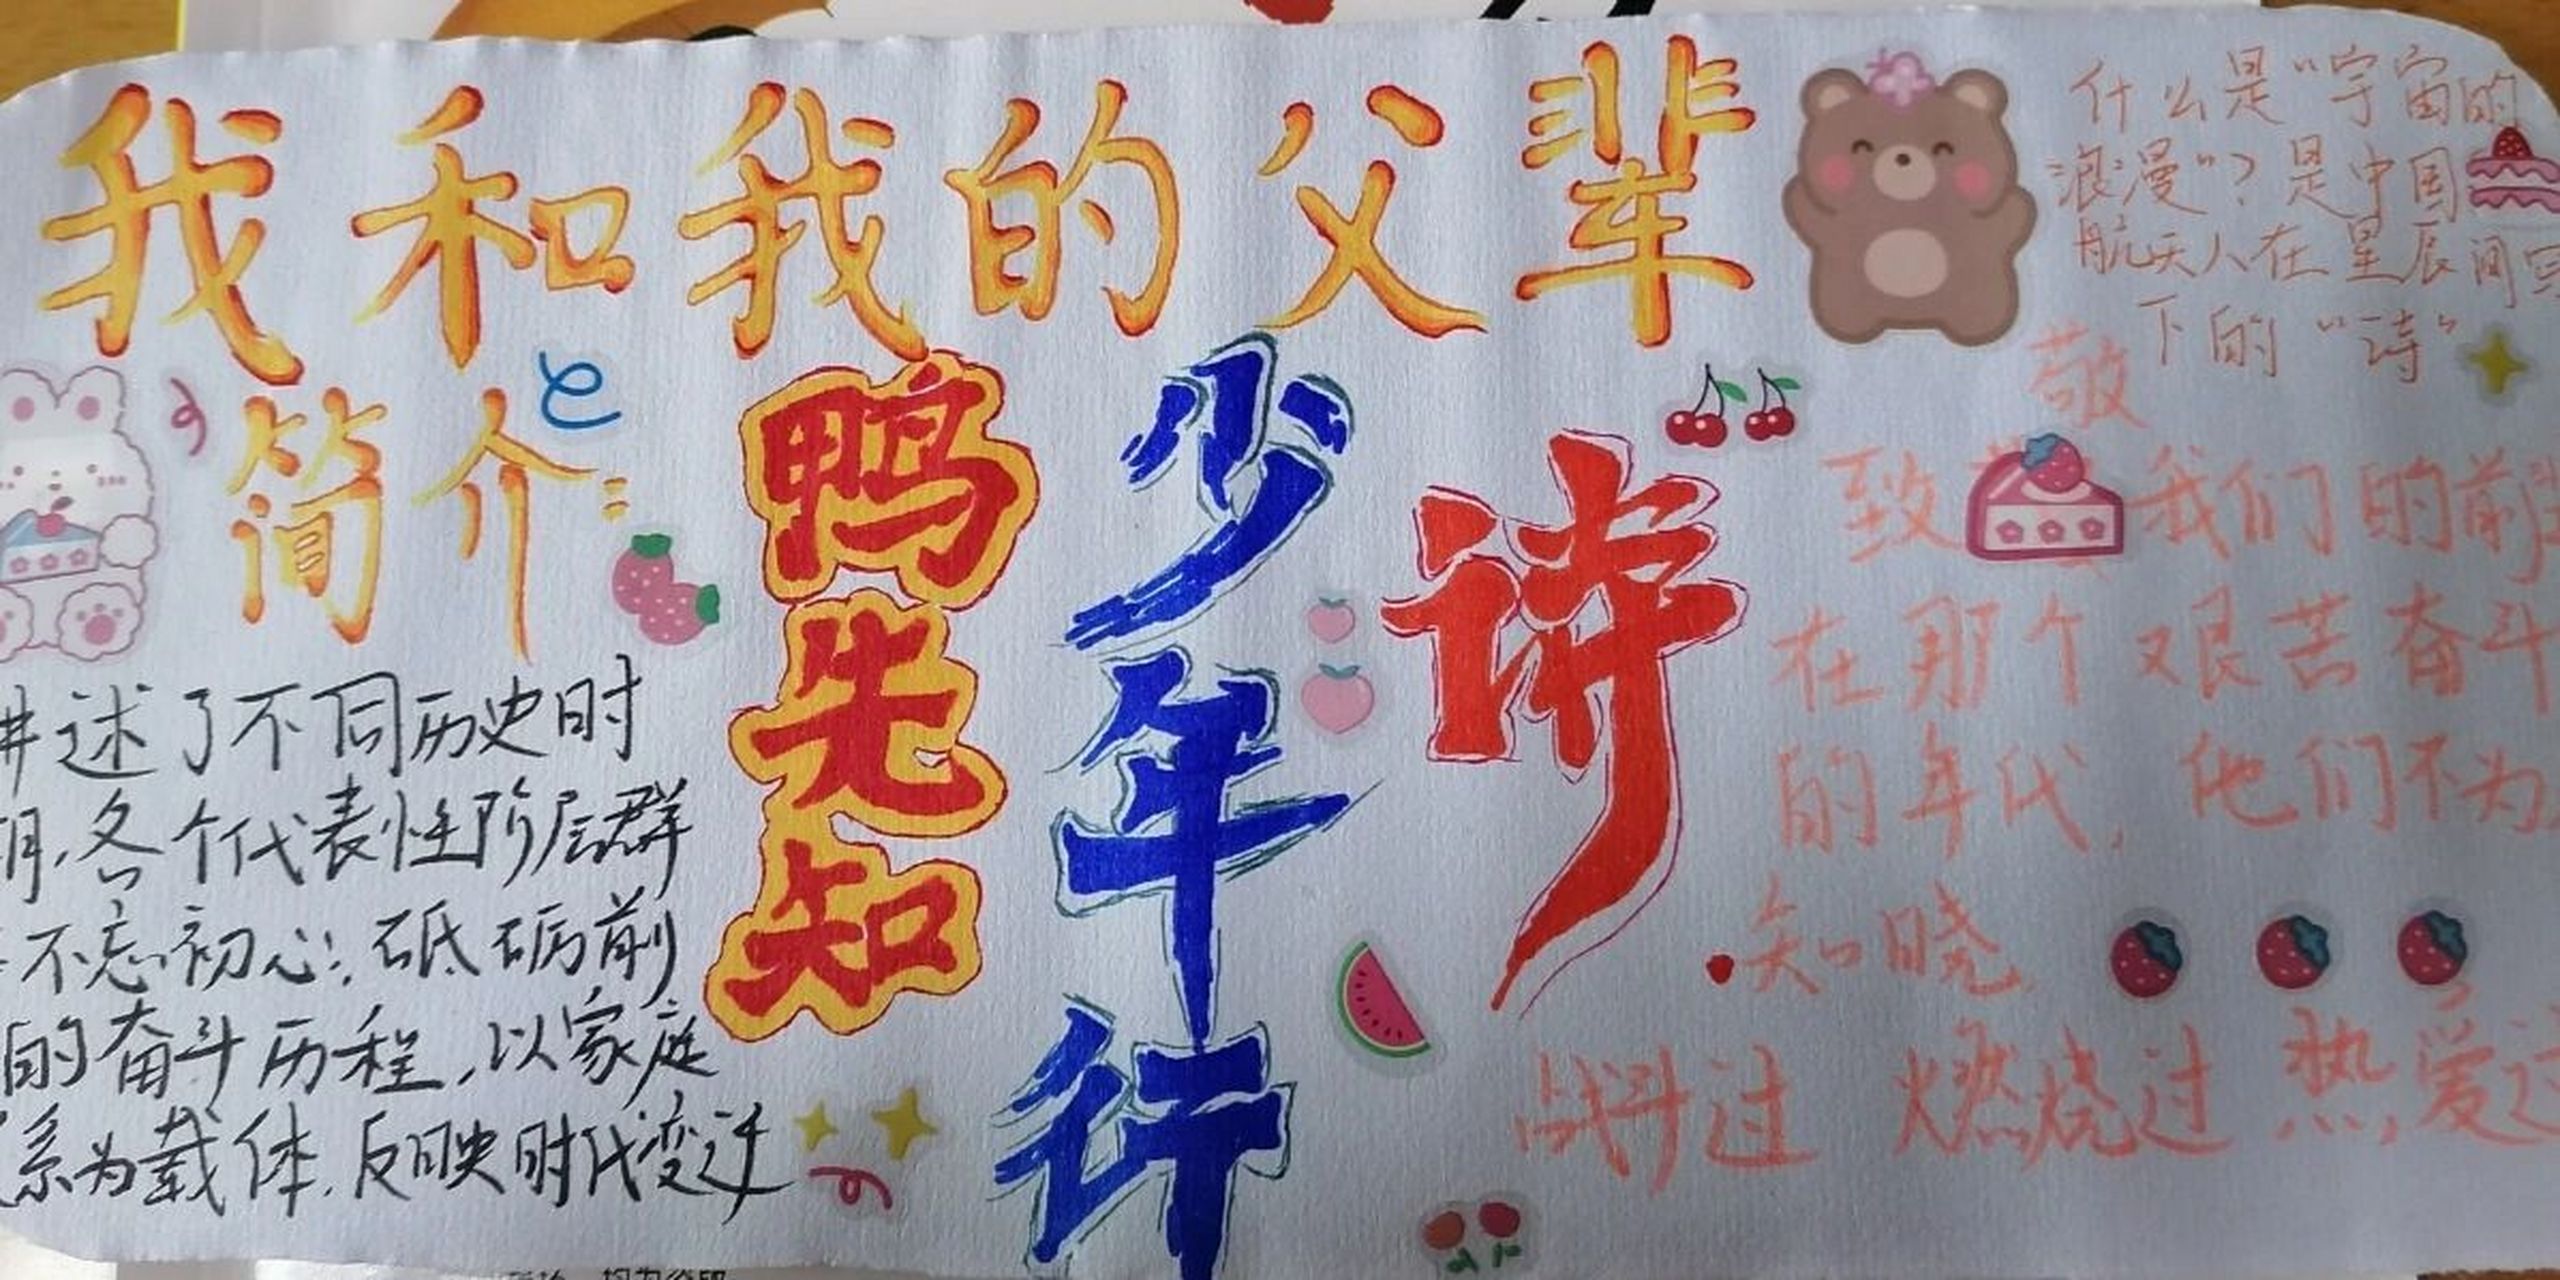 我和我的父辈
简介：
讲述了不同历史时
期，各个代表性阶层群
不忘初心，砥砺前
的奋斗历程，以家庭
系为载体，反映时代变迁
鸭先知
少年行
诗
什么是“宇宙的
浪漫”？是中国
航天人在星辰间写
下的“诗”
敬
致 我们的前
在那个艰苦奋斗
的年代，他们不为
知晓
战斗过 燃烧过 热爱过